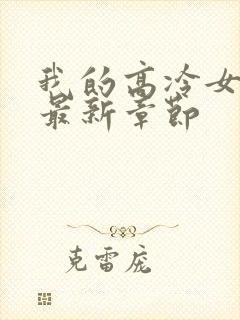 我的高冷女
最新章节
克雷庞